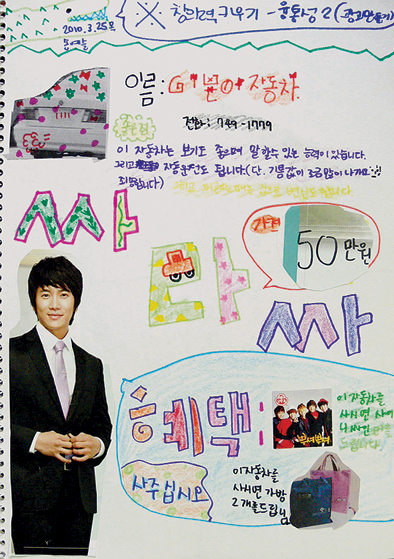 ※ 창의력키우기 - 융통성2 (광고만들기)
2010. 3. 25. 목
이름: 자동차
전화: 749-1779
이 자동차는 보기도 좋으며 말할수 있는 능력이 있습니다.
그리고 자동운전도 됩니다(단, 기름값이 조금 많이 나가요
죄송합니다)
싸다싸
가격
50만원
혜택:
이 자동차를
사시면 샤이
니 싸인
드립니다.
사주십시오
이 자동차를
사시면 가방
2개를 드립니